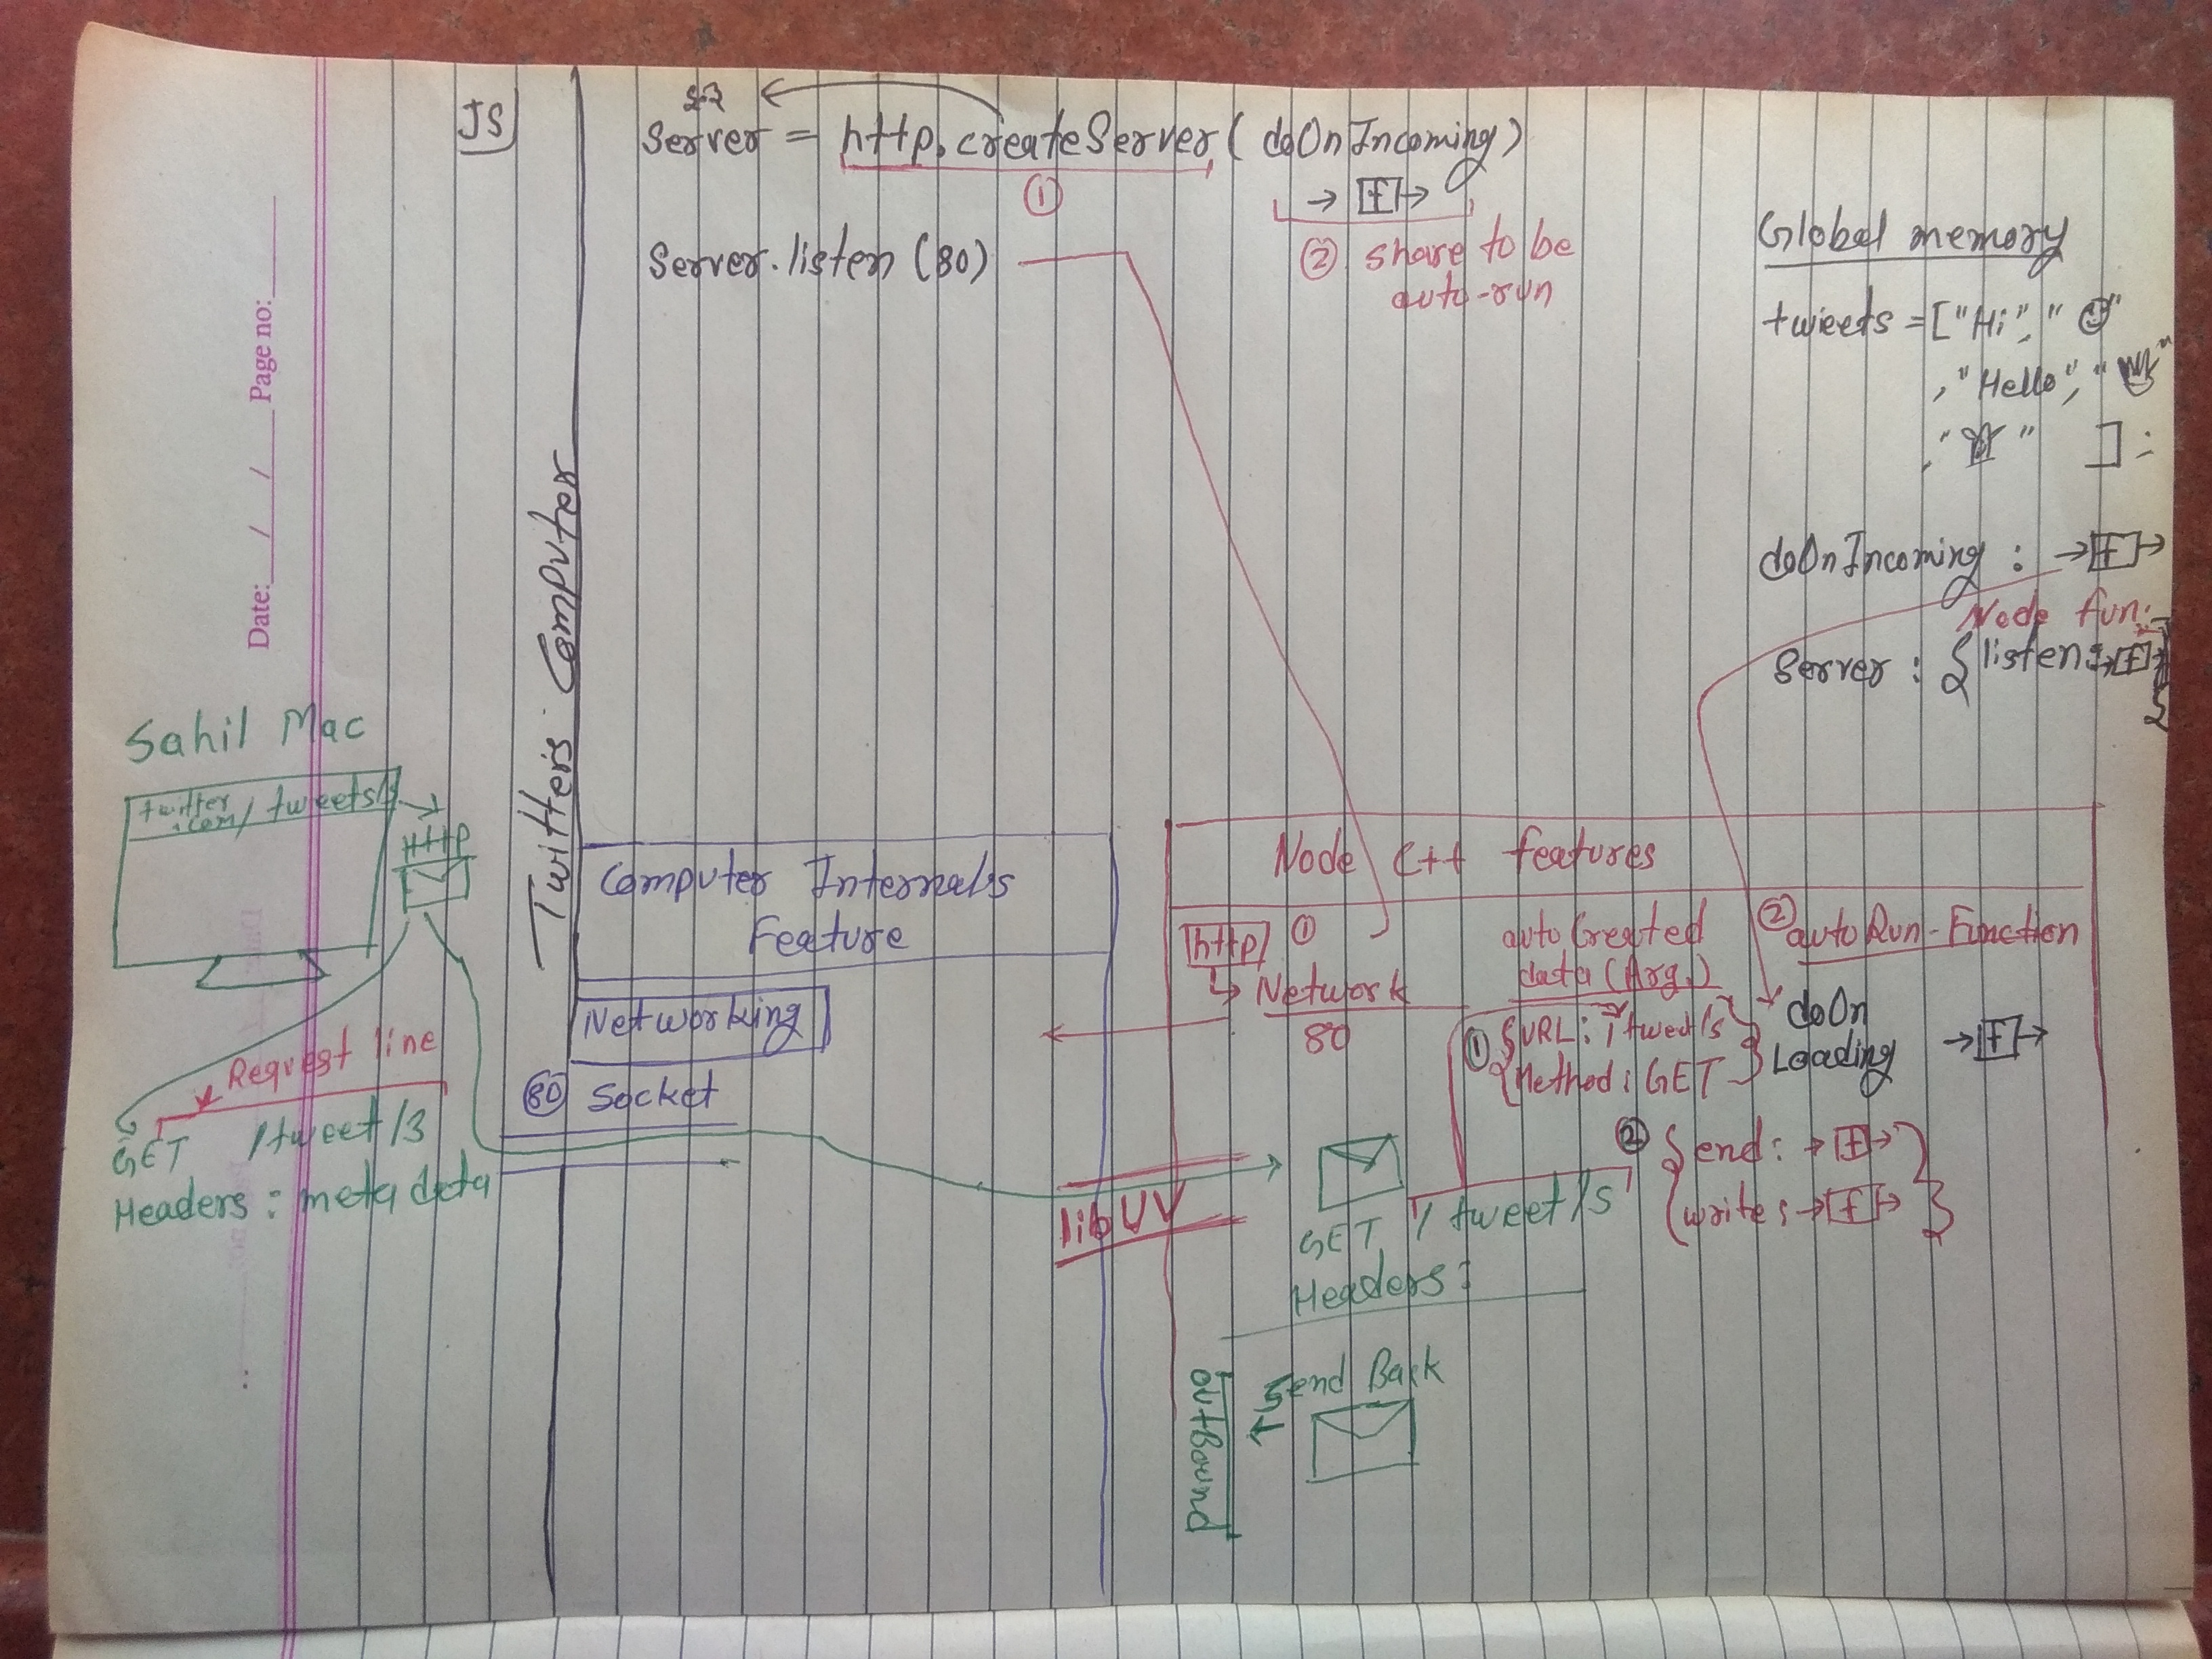 JS
Server = http.createServer( doOnIncoming)
①
→ f →
② share to be
auto-run
Server.listen (80)
Global memory
tweets = ["Hi", "☺"
, "Hello", "
, " " ] :
doOnIncoming : → f →
Node fun.
Server : { listen: → f →
}
Date: / / Page no:
Twitter's Computer
Sahil Mac
twitter
.com/ tweets/
HTTP
Request line
GET /tweet/3
Headers : meta data
Computer Internals
Feature
Networking
80 Socket
libUV
Node C++ features
http ①
↳ Network
80
auto Created
data (Arg.)
① { URL: /tweet/s
Method: GET }
② auto Run-Function
doOn
Loading → f →
② { end: → f →
write: → f → }
GET / tweet/s
Headers :
Send Back
outBound